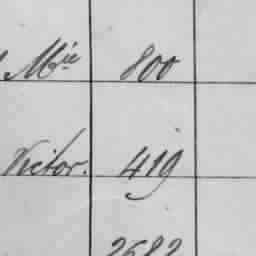 Mie 800
Victor. 419
2682